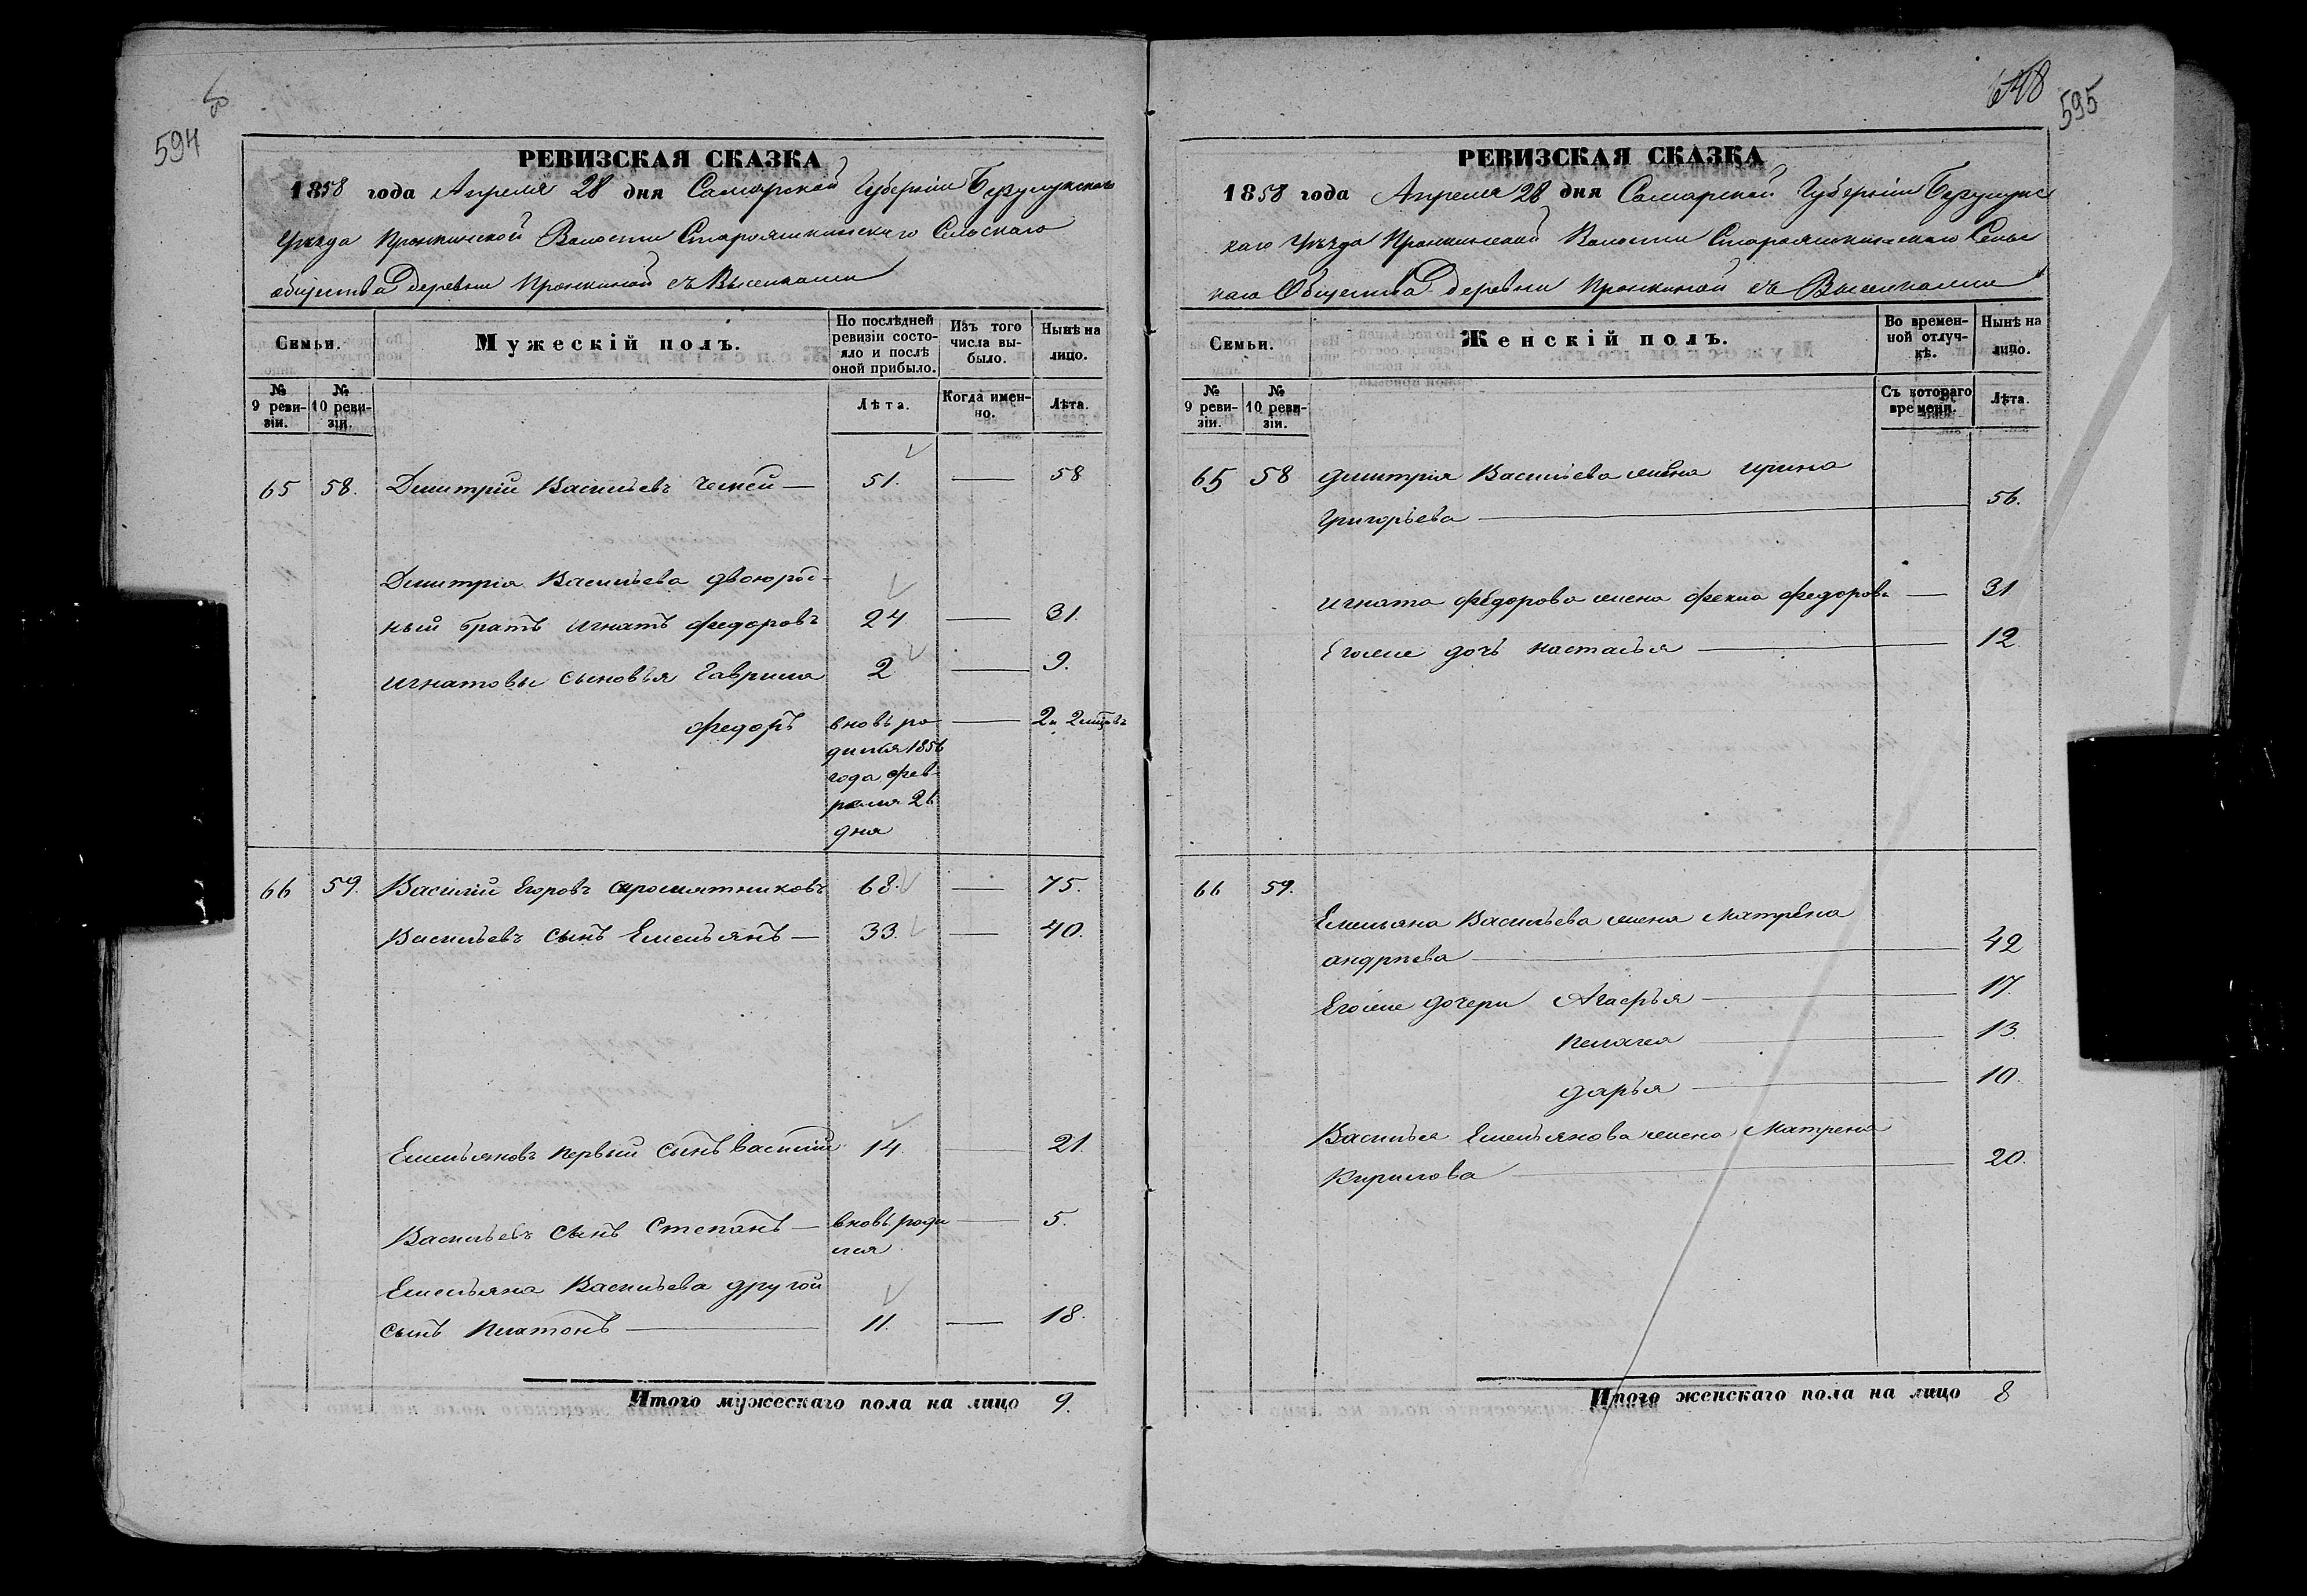 594
РЕВИЗСКАЯ СКАЗКА
1858 года Апреля 28 дня Самарской Губерніи Бузулукскаго
Уѣзда Пронкинской Волости Старояшкинскаго Сельскаго
общества Деревни Пронкиной съ Выселками
Семьи.
Мужескій полъ.
По послѣдней ревизіи состояло и послѣ оной прибыло.
Изъ того числа выбыло.
Нынѣ на лицо.
№ 9 ревизіи.
№ 10 ревизіи.
Лѣта.
Когда именно.
Лѣта.
65 58. Дмитрій Васильевъ — 51. — 58
Дмитрія Васильева двоюрод-
ный братъ Игнатъ Федоровъ 24 — 31.
Игнатовы сыновья Гаврила 2 — 9.
Федоръ вновь ро — 2 и 2 мцовъ
дился 1856
года фев-
раля 26
дня
66 59. Василій Егоровъ 68. — 75.
Васильевъ сынъ Емельянъ — 33. — 40.
Емельяновъ первый сынъ Василій 14. — 21.
Васильевъ сынъ Степанъ — вновь роди — 5.
лся
Емельяна Васильева другой
сынъ Платонъ — 11. — 18.
Итого мужескаго пола на лицо 9.
595
РЕВИЗСКАЯ СКАЗКА
1858 года Апреля 28 дня Самарской Губерніи Бузулукс
каго Уѣзда Пронкинской Волости Старояшкинскаго Сельс
каго Общества Деревни Пронкиной съ Выселками
Семьи.
Женскій полъ.
Во временной отлучкѣ.
Нынѣ на лицо.
№ 9 ревизіи.
№ 10 ревизіи.
Съ котораго времени.
Лѣта.
65 58 Дмитрія Васильева жена Ирина
Григорьева — 56.
Игната Федорова жена Фекла Федорова — 31
Егоже дочь Настасья — 12
66 59.
Емельяна Васильева жена Матрена
Андреева — 42
Егоже дочери Агафья — 17.
Пелагея — 13.
Дарья — 10.
Василья Емельянова жена Матрена
Кирилова — 20.
Итого женскаго пола на лицо 8